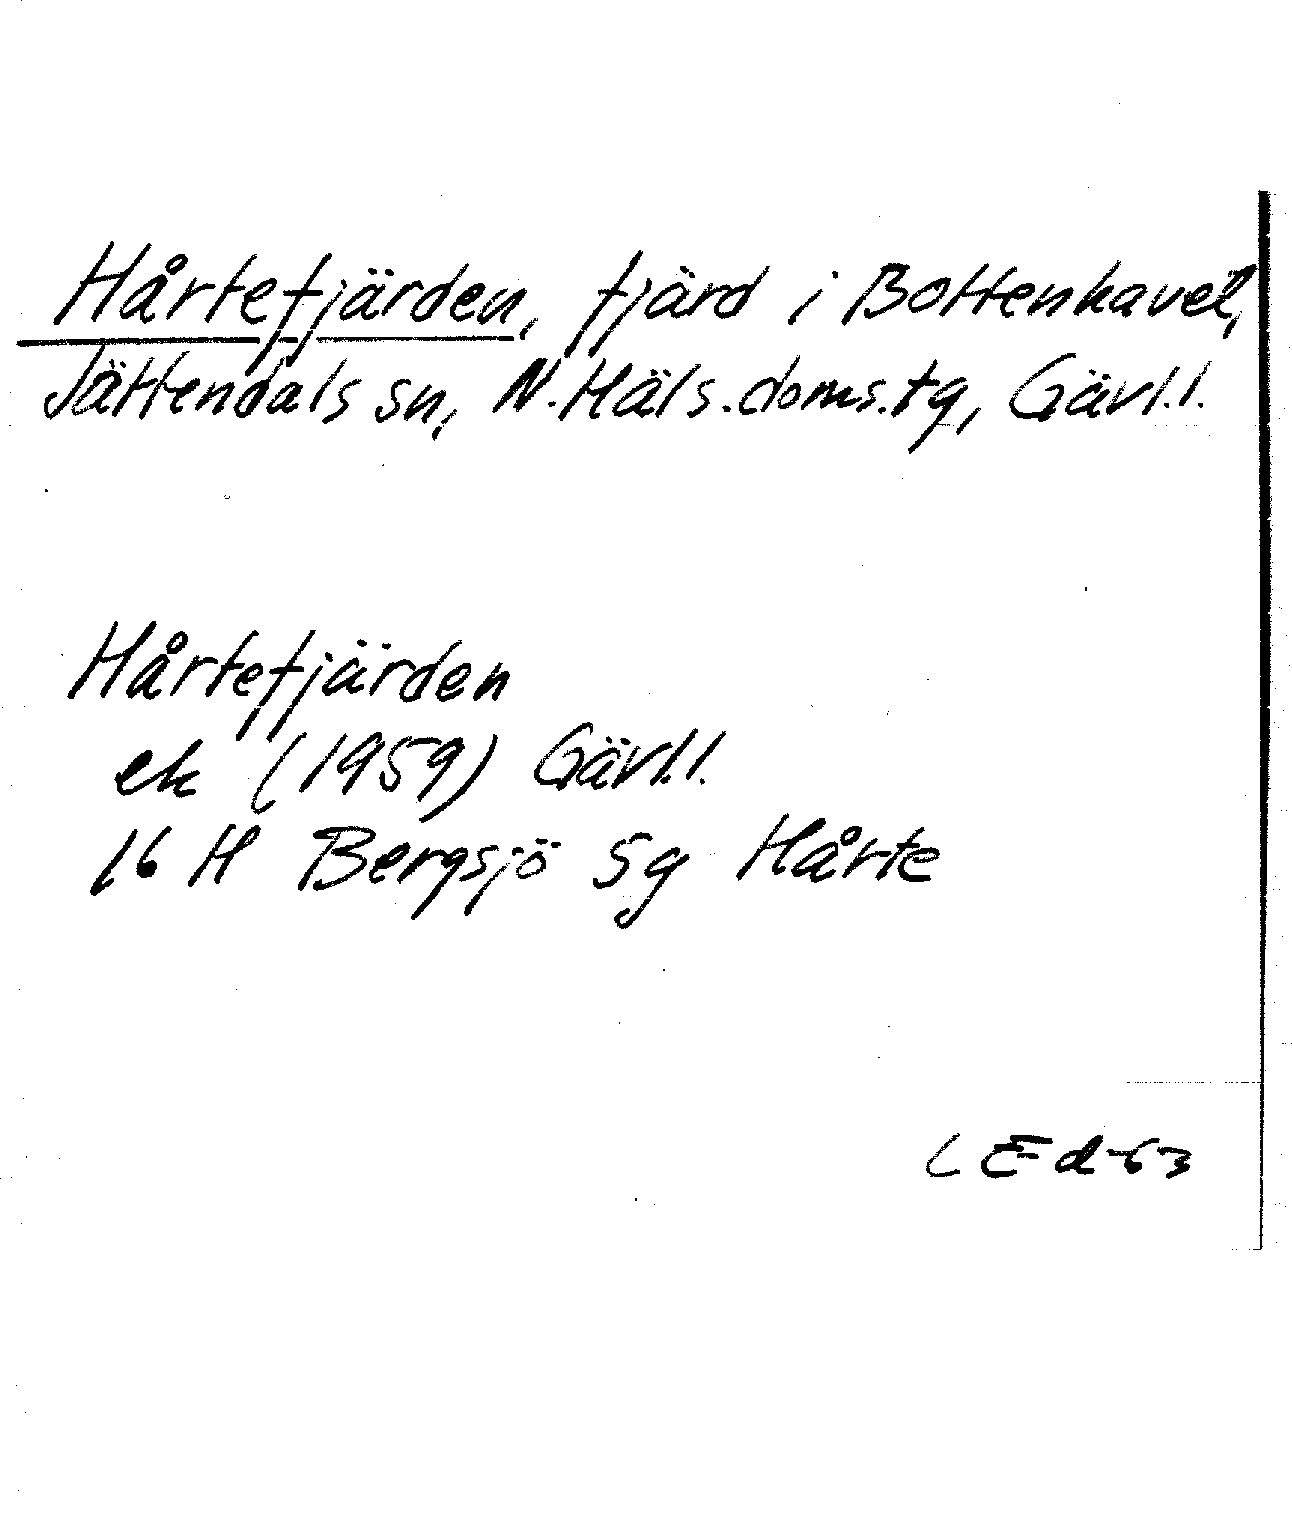 Hårtefjärden, fjärd i Bottenhavet,
Jättendals sn, N.Häls.doms.tg, Gävl.l.
Hårtefjärden
ek (1959) Gävl.l.
16 H Bergsjö 5g Hårte
LEd-63